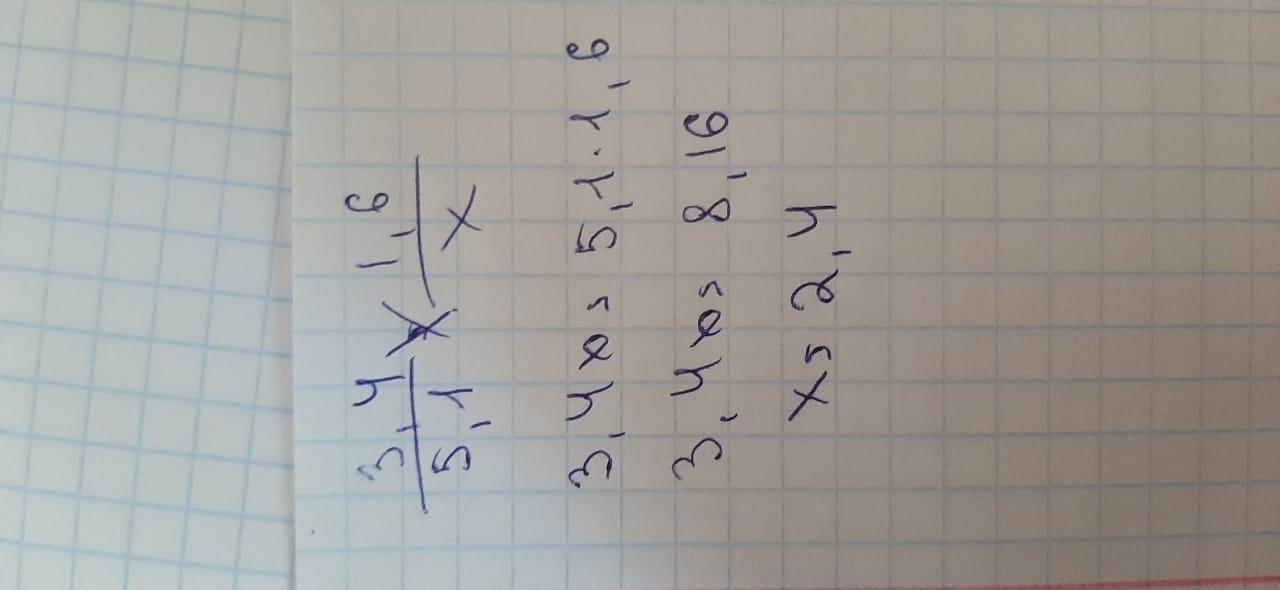 3,4/5,1 × 1,6/x
3,4x = 5,1·1,6
3,4x = 8,16
x = 2,4